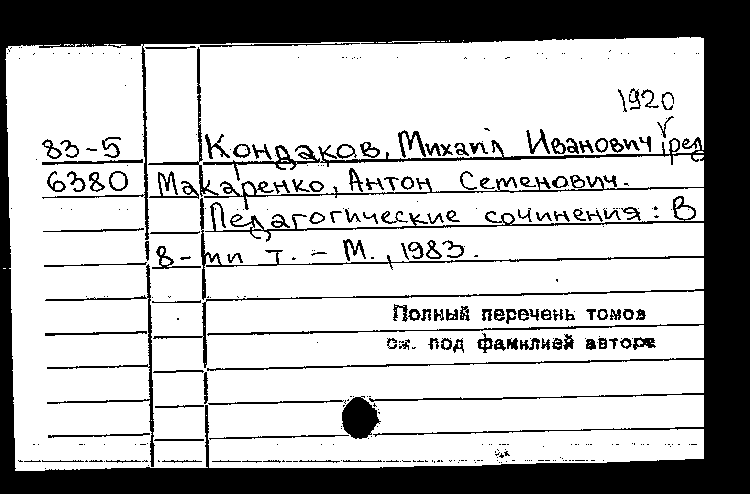 1920
83-5 Кондаков, Михаил Иванович, ред
6380 Макаренко, Антон Семенович.
Педагогические сочинения: В
8-ми т. - М., 1983.
Полный перечень томов
см. под фамилией автора